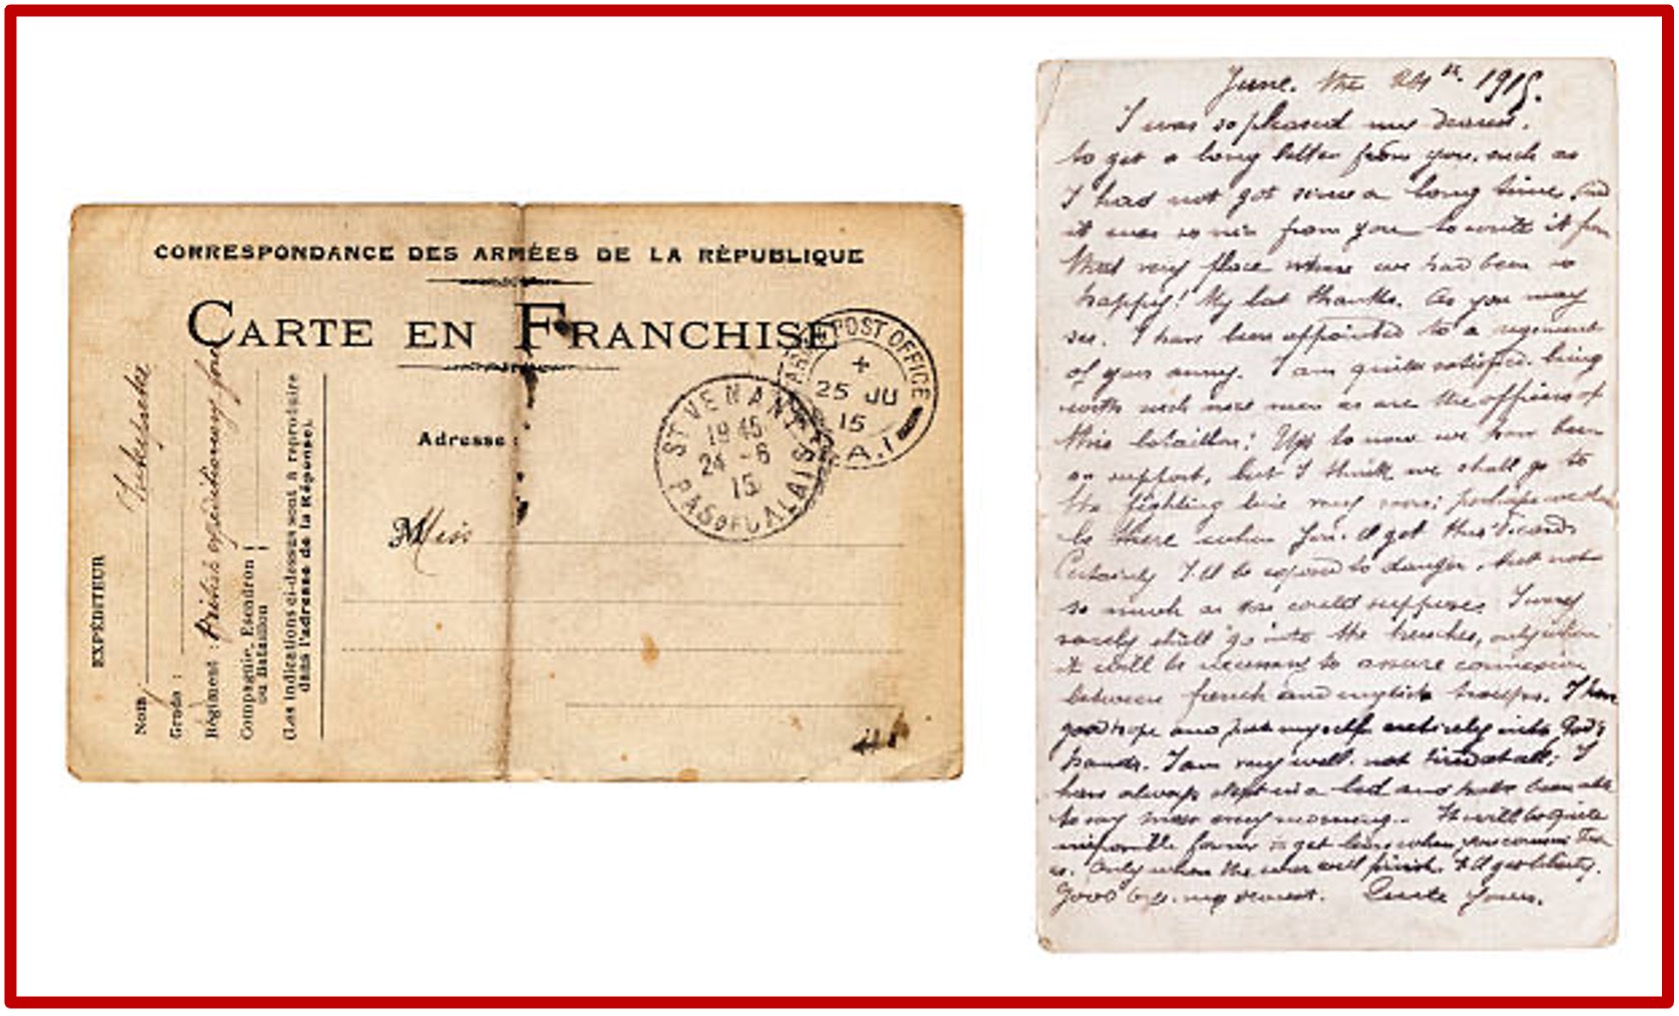 CORRESPONDANCE DES ARMÉES DE LA RÉPUBLIQUE
CARTE EN FRANCHISE
ARMY POST OFFICE
25 JU
15
A.1
ST VENANT
19 45
24 - 6
15
PAS DE CALAIS
Adresse :
Miss
EXPÉDITEUR
Nom
Interprete
Grade :
Régiment : British expeditionary force
Compagnie, Escadron
ou Bataillon
(Les indications ci-desses sont à reproduire
dans l'adresse de la Réponse).
June. the 24th. 1915.
I was so pleased my dearest,
to get a long letter from you, such as
I had not got since a long time, and
it was so nice from you to write it from
that very place where we had been so
happy! My best thanks. As you may
see, I have been appointed to a regiment
of your army. I am quite satisfied being
with such nice men as are the officers of
this bataillon; Up to now we have been
on support, but I think we shall go to
the fighting line very soon; perhaps we
be there when you'll get this card.
Certainly I'll be exposed to danger, but not
so much as you could supposes. I very
rarely shall go into the trenches, only when
it will be necessary to assure connexion
between french and english troops. I have
good hope and put myself entirely into God's
hands. I am very well, not tired at all; I
have always slept in a bed and have been able
to my mass every morning. It will be quite
impossible for me to get leave when you
us. Only when the war will finish, I'll get liberty.
Good bye, my dearest. Yours.